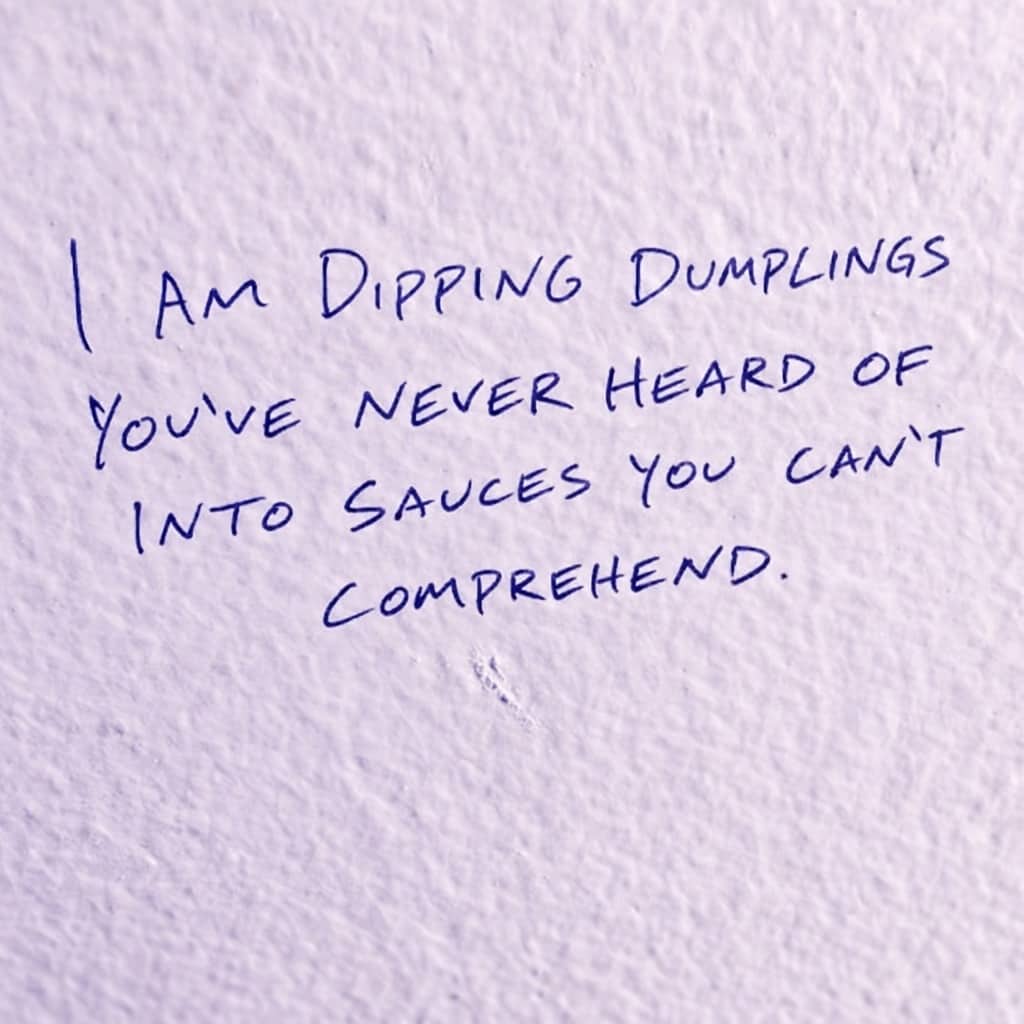 I AM DIPPING DUMPLINGS
YOU'VE NEVER HEARD OF
INTO SAUCES YOU CAN'T
COMPREHEND.